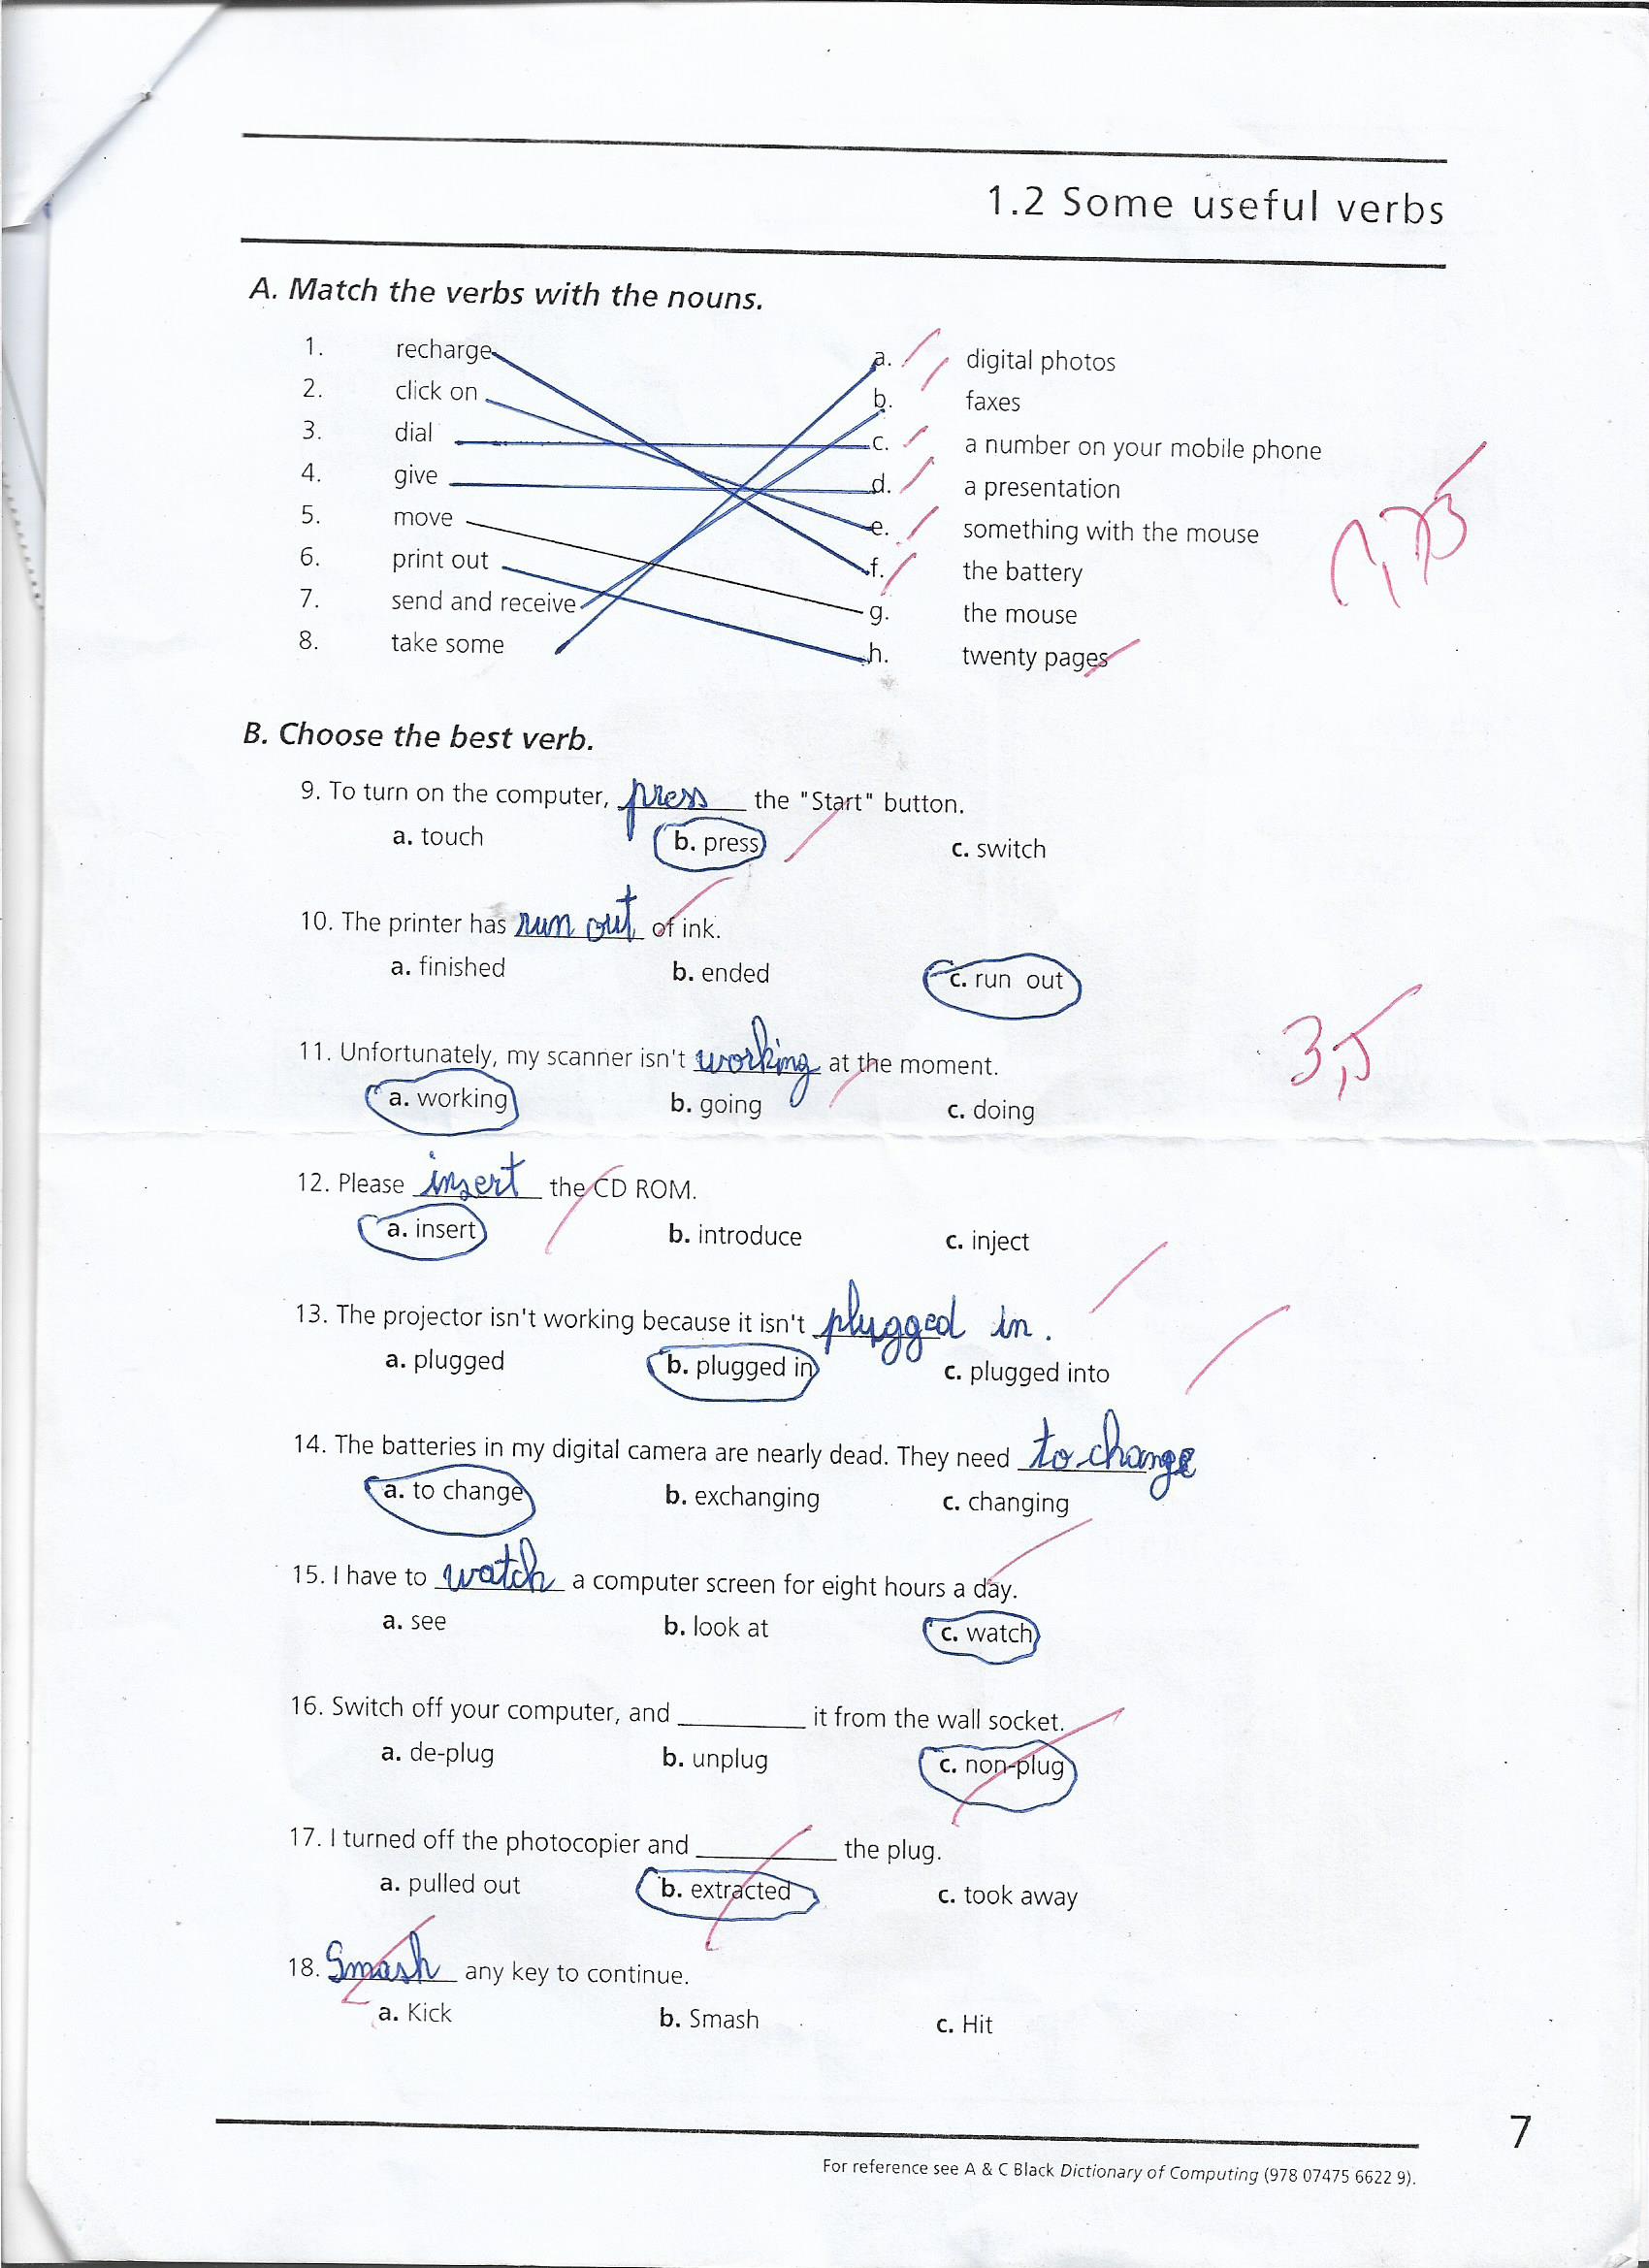 1.2 Some useful verbs
A. Match the verbs with the nouns.
1. recharge a. digital photos
2. click on b. faxes
3. dial c. a number on your mobile phone
4. give d. a presentation
5. move e. something with the mouse
6. print out f. the battery
7. send and receive g. the mouse
8. take some h. twenty pages
B. Choose the best verb.
9. To turn on the computer, press the "Start" button.
a. touch b. press c. switch
10. The printer has run out of ink.
a. finished b. ended c. run out
11. Unfortunately, my scanner isn't working at the moment.
3,5
a. working b. going c. doing
12. Please insert the CD ROM.
a. insert b. introduce c. inject
13. The projector isn't working because it isn't plugged in.
a. plugged b. plugged in c. plugged into
14. The batteries in my digital camera are nearly dead. They need to change
a. to change b. exchanging c. changing
15. I have to watch a computer screen for eight hours a day.
a. see b. look at c. watch
16. Switch off your computer, and ________ it from the wall socket.
a. de-plug b. unplug c. non-plug
17. I turned off the photocopier and ________ the plug.
a. pulled out b. extracted c. took away
18. Smash any key to continue.
a. Kick b. Smash c. Hit
7
For reference see A & C Black Dictionary of Computing (978 07475 6622 9).